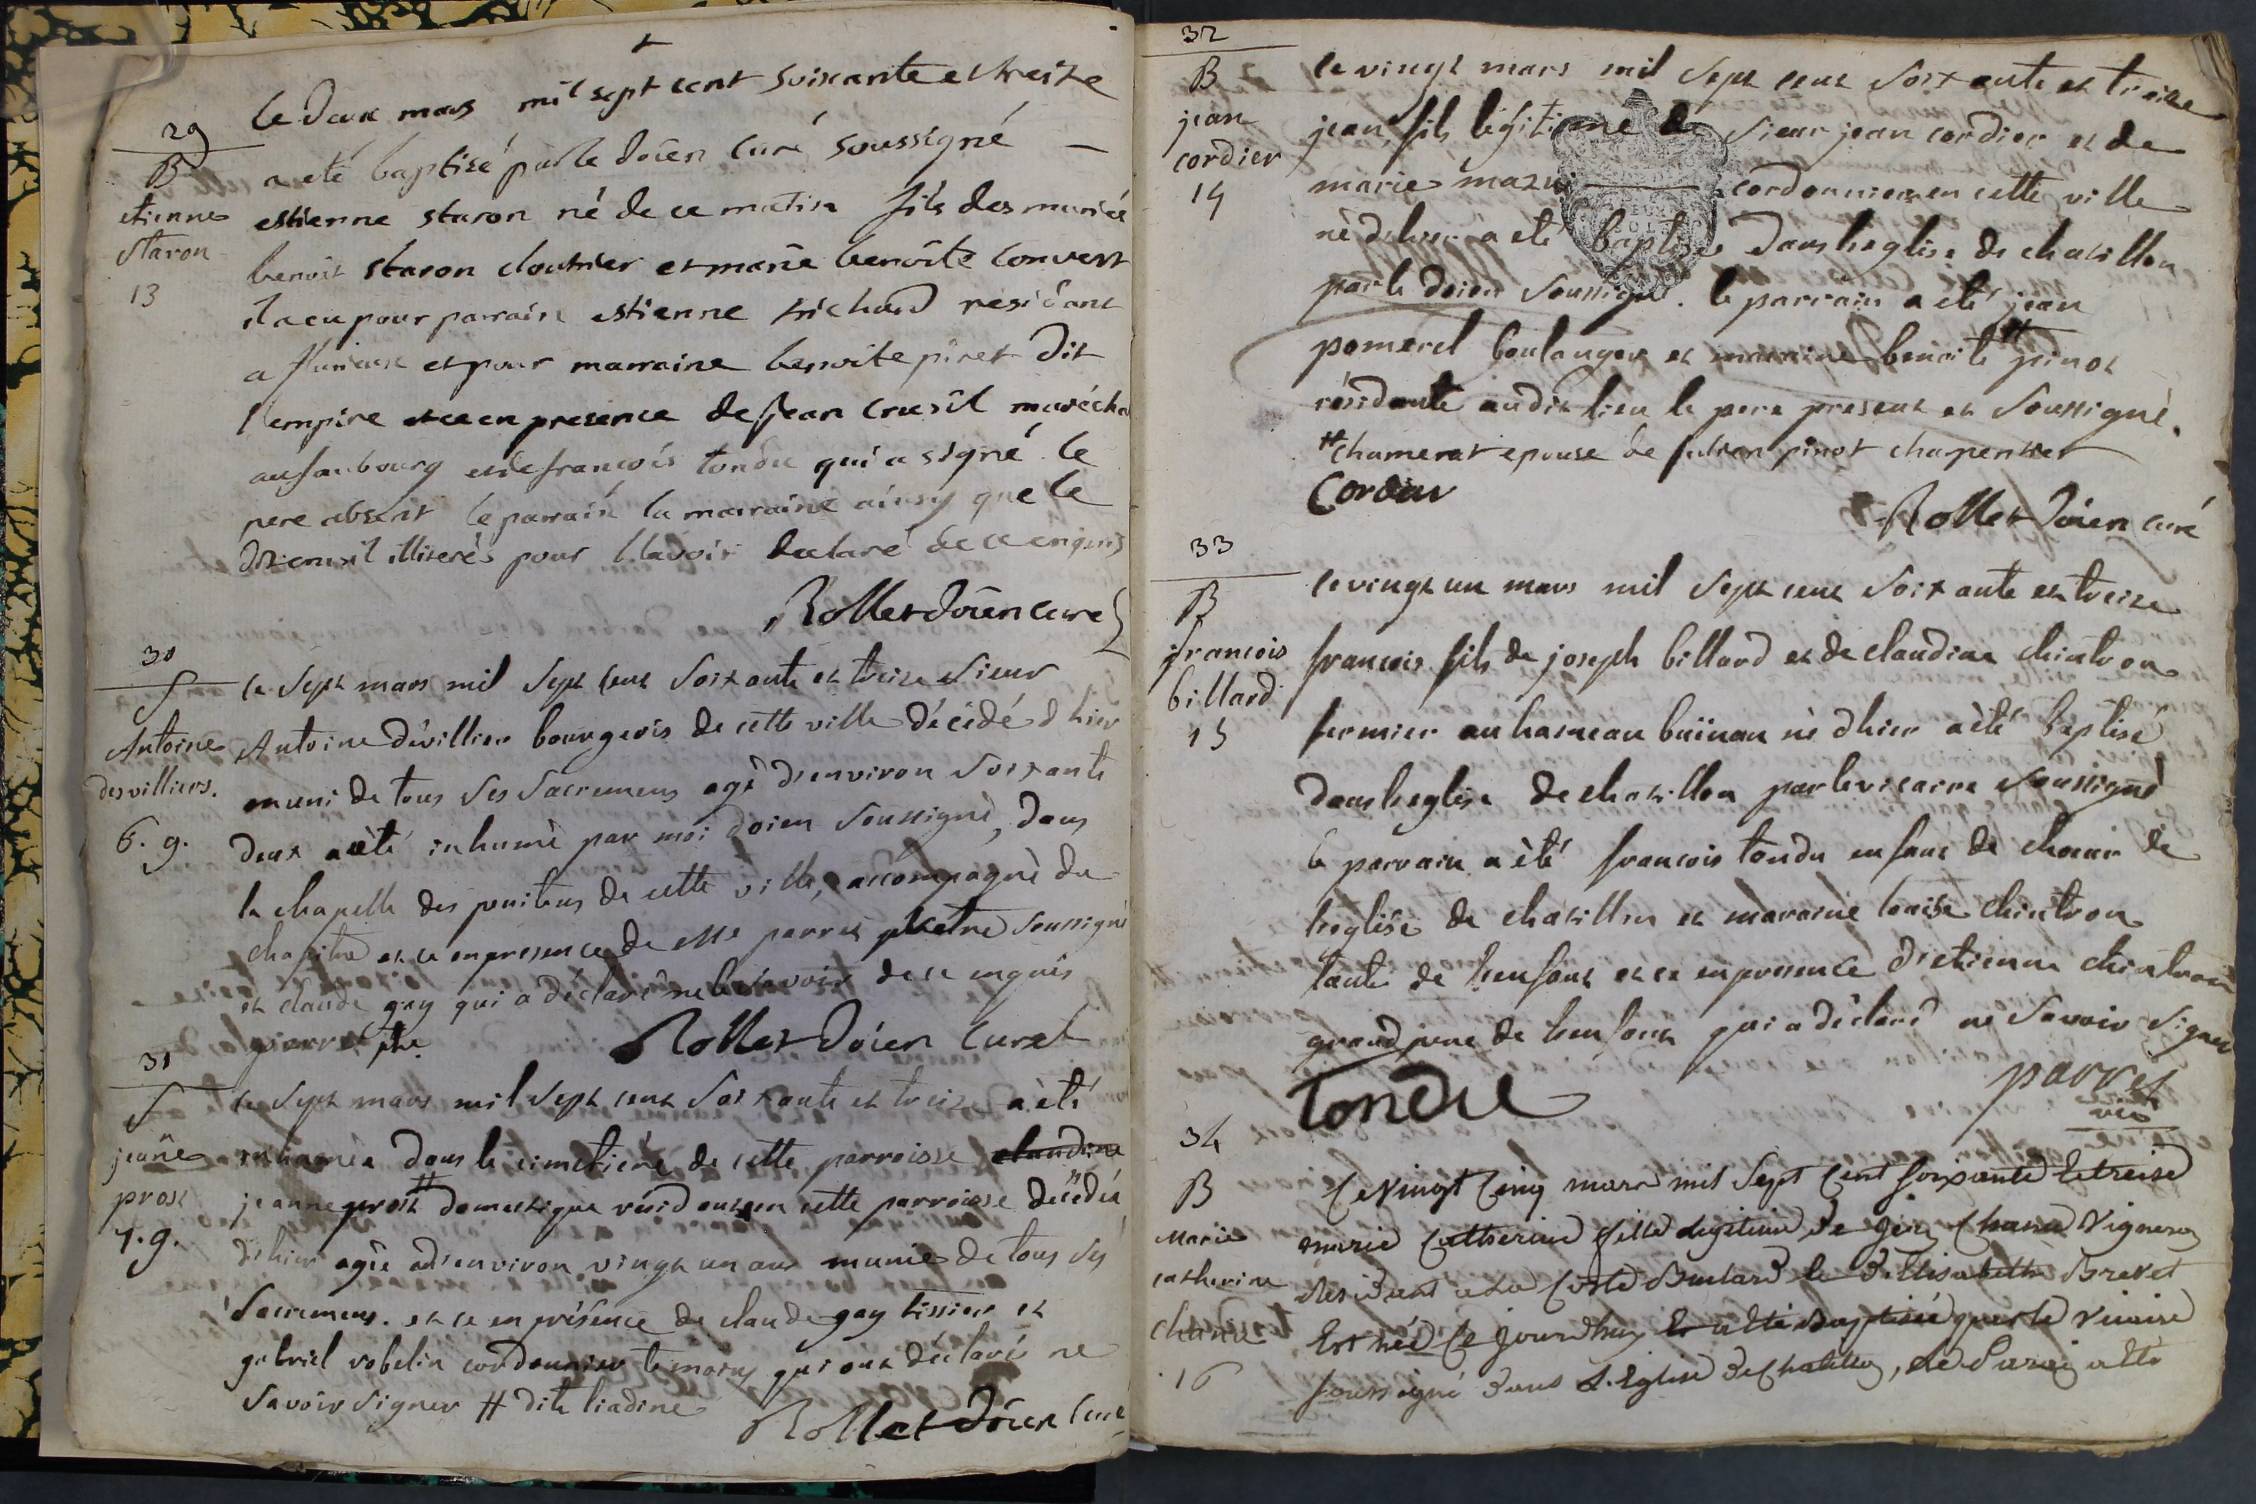 29
B
etienne
staron
13
le deux mars mil sept cent soixante et treize
a eté baptisé par le doïen curé soussigné
estienne staron né de ce matin fils des mariés
benoit staron cloutrier et marie benoite convert
il a eu pour parrain estienne trichard residant
a flurieux et pour marraine benoite pinet dit
l'empire et ce en presence de jean crusil marécha
au faubourg et de francois tondu qui a signé le
pere absent le parrain la marraine ainsy que le
dit crusil illiterés pour l'avoir declaré de ce enquis
Rollet doïen curé
30
S
Antoine
desvilliers.
6. g.
le sept mars mil sept cent soixante et treize sieur
Antoine dévillier bourgeois de cette ville décédé d'hier
muni de tous ses sacremens agé d'environ soixante
deux a èté inhumé par moi doien soussigné, dans
la chapelle des penitens de cette ville, accompagné du
chapitre et ce en presence de mre parret prêtre soussigné
et claude gay qui a déclaré ne le savoir de ce enquis
parret ptre.
Rollet doïen curé
31
S
jeañe
prost
7. g.
le sept mars mil sept cent soixante et treize a èté
inhumée dans le cimetiére de cette parroisse claudine
jeanne prost # domestique résidante en cette parroisse décédée
d'hier agée d'environ vingt un ans munie de tous ses
sacremens. et ce en présence de claude gay tissier et
gabriel robelin cordonnier temoins qui ont déclaré ne
savoir signer # dite liadine
Rollet doïen curé
32
B
jean
cordier
14
le vingt mars mil sept cent soixante et treize
jean, fils légitime de sieur jean cordier et de
marie cordonnier en cette ville
né d'hier a eté baptisé dans l'eglise de chatillon
par le doien soussigné. le parrain a eté jean
pomerel boulanger et marraine benoite # pinot
résidante audit lieu le pere present et soussigné.
# chamerat epouse de julien pinot charpentier
Cordier
Rollet doïen curé
33
B
francois
billard
15
le vingt un mars mil sept cent soixante et treize
francois fils de joseph billard et de claudine chintron
fermier au hameau né d'hier a èté baptisé
dans l'eglise de chatillon par le vicaire soussigné
le parrain a èté francois tondu enfant de choeur de
l'eglise de chatillon et marraine louise chintron
tante de l'enfant et ce en presence d'etienne chintron
grand pere de l'enfant qui a déclaré ne savoir signer
Tondu
parret
vic
34
B
Marie
catherine
chana
16
Le vingt Cinq mars mil Sept Cent soixante Et treise
marie Catherine fille legitime De Chana Vigneron
Residant a La Coste & D'Elisabeth Brevet
Est née Ce jourdhuy Et a Eté Baptisée par le Vicaire
soussigné Dans L'Eglise De Chatillon, Le Parain a Eté